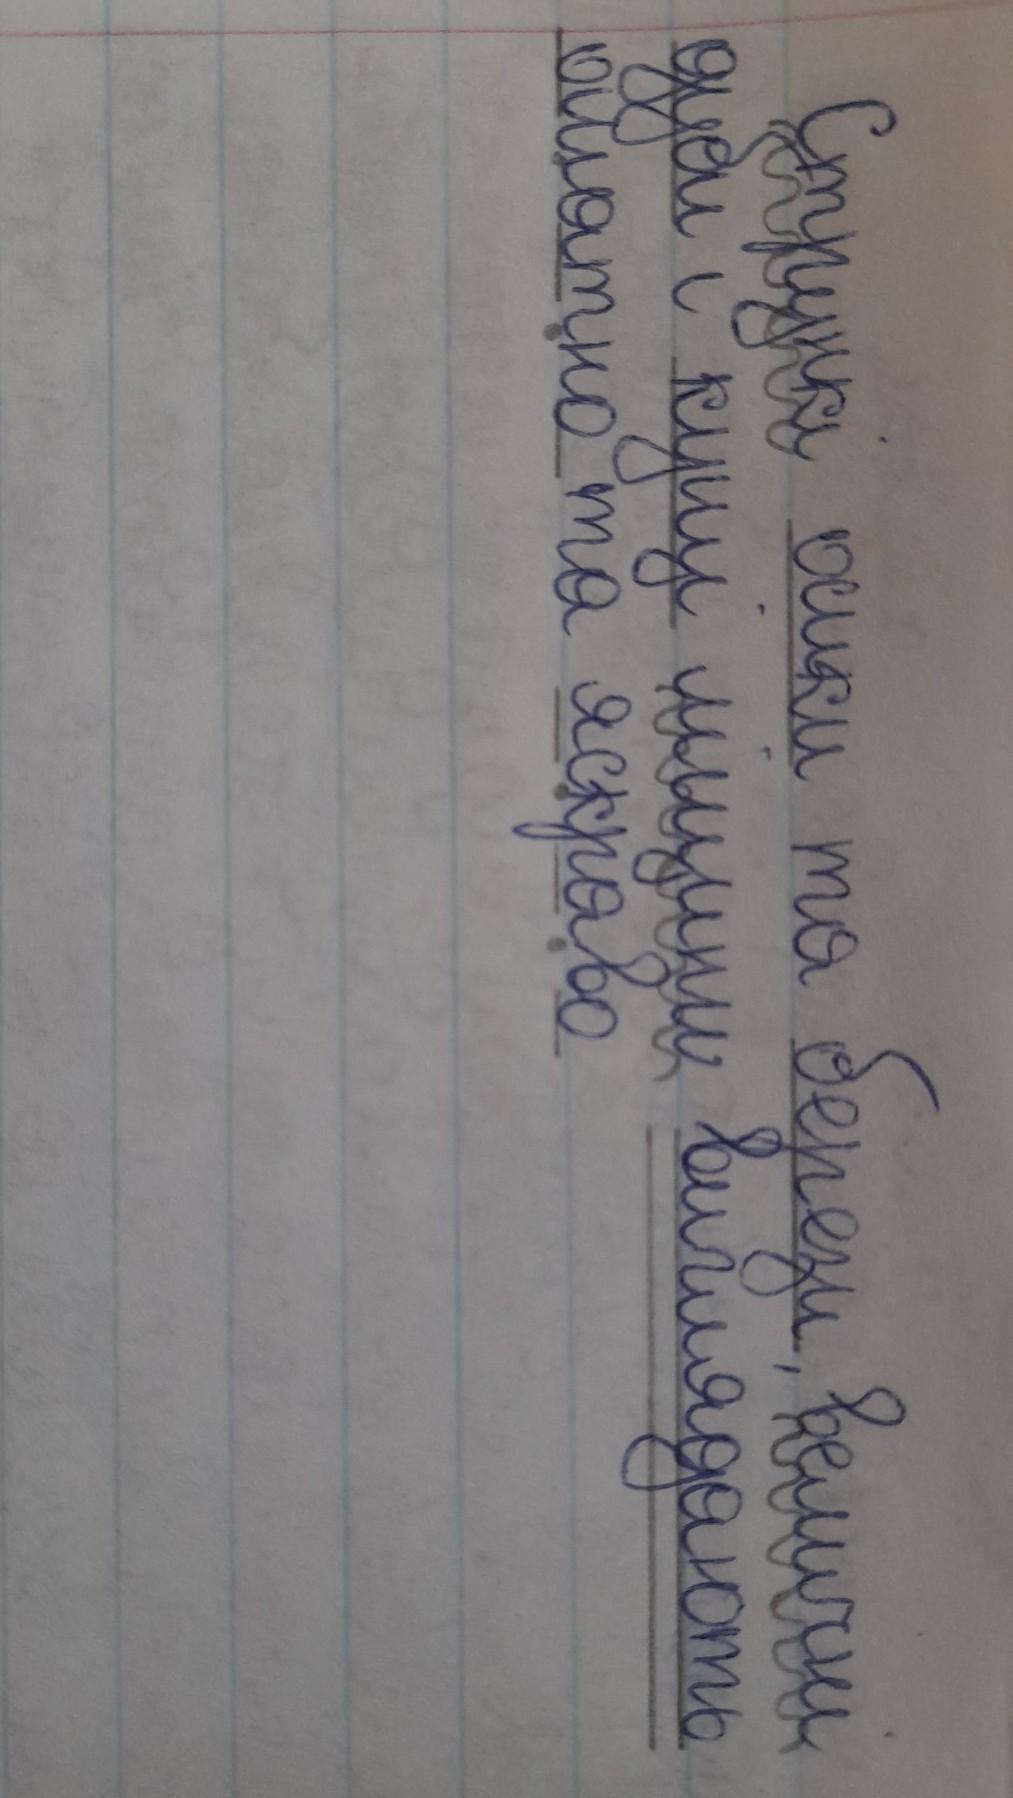 Стрункі осики та берези, величні
дуби і кущі ліщини виглядають
ошатно та яскраво